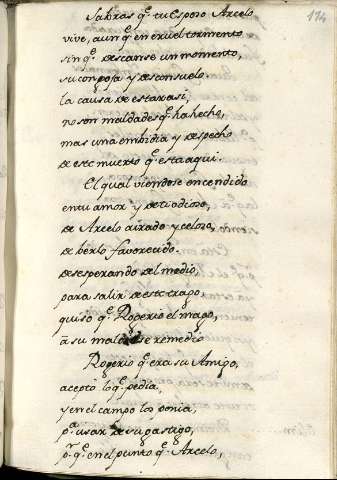 174
Sabras q̃. tu esposo Arcelo
vive, aunq̃. en cruel tormento
sin q̃. descanse un momento,
su congoja y desconsuelo.
la causa de estar asi,
no son maldades q̃. ha hecho,
mas una embidia y despecho
de este muerto q̃. esta aqui.
El qual viendose encendido
en tu amor y de ti odioso,
de Arcelo airado y celoso,
de berlo favorecido.
desesperando del medio,
para salir de este trago,
quiso q̃. Rogerio el mago,
à su mal diese remedio
Rogerio q̃. era su Amigo,
aceptò lo q̃. pedia,
y en el campo los ponia,
pª. usar de su castigo,
pr. q̃. en el punto q̃. Arcelo,